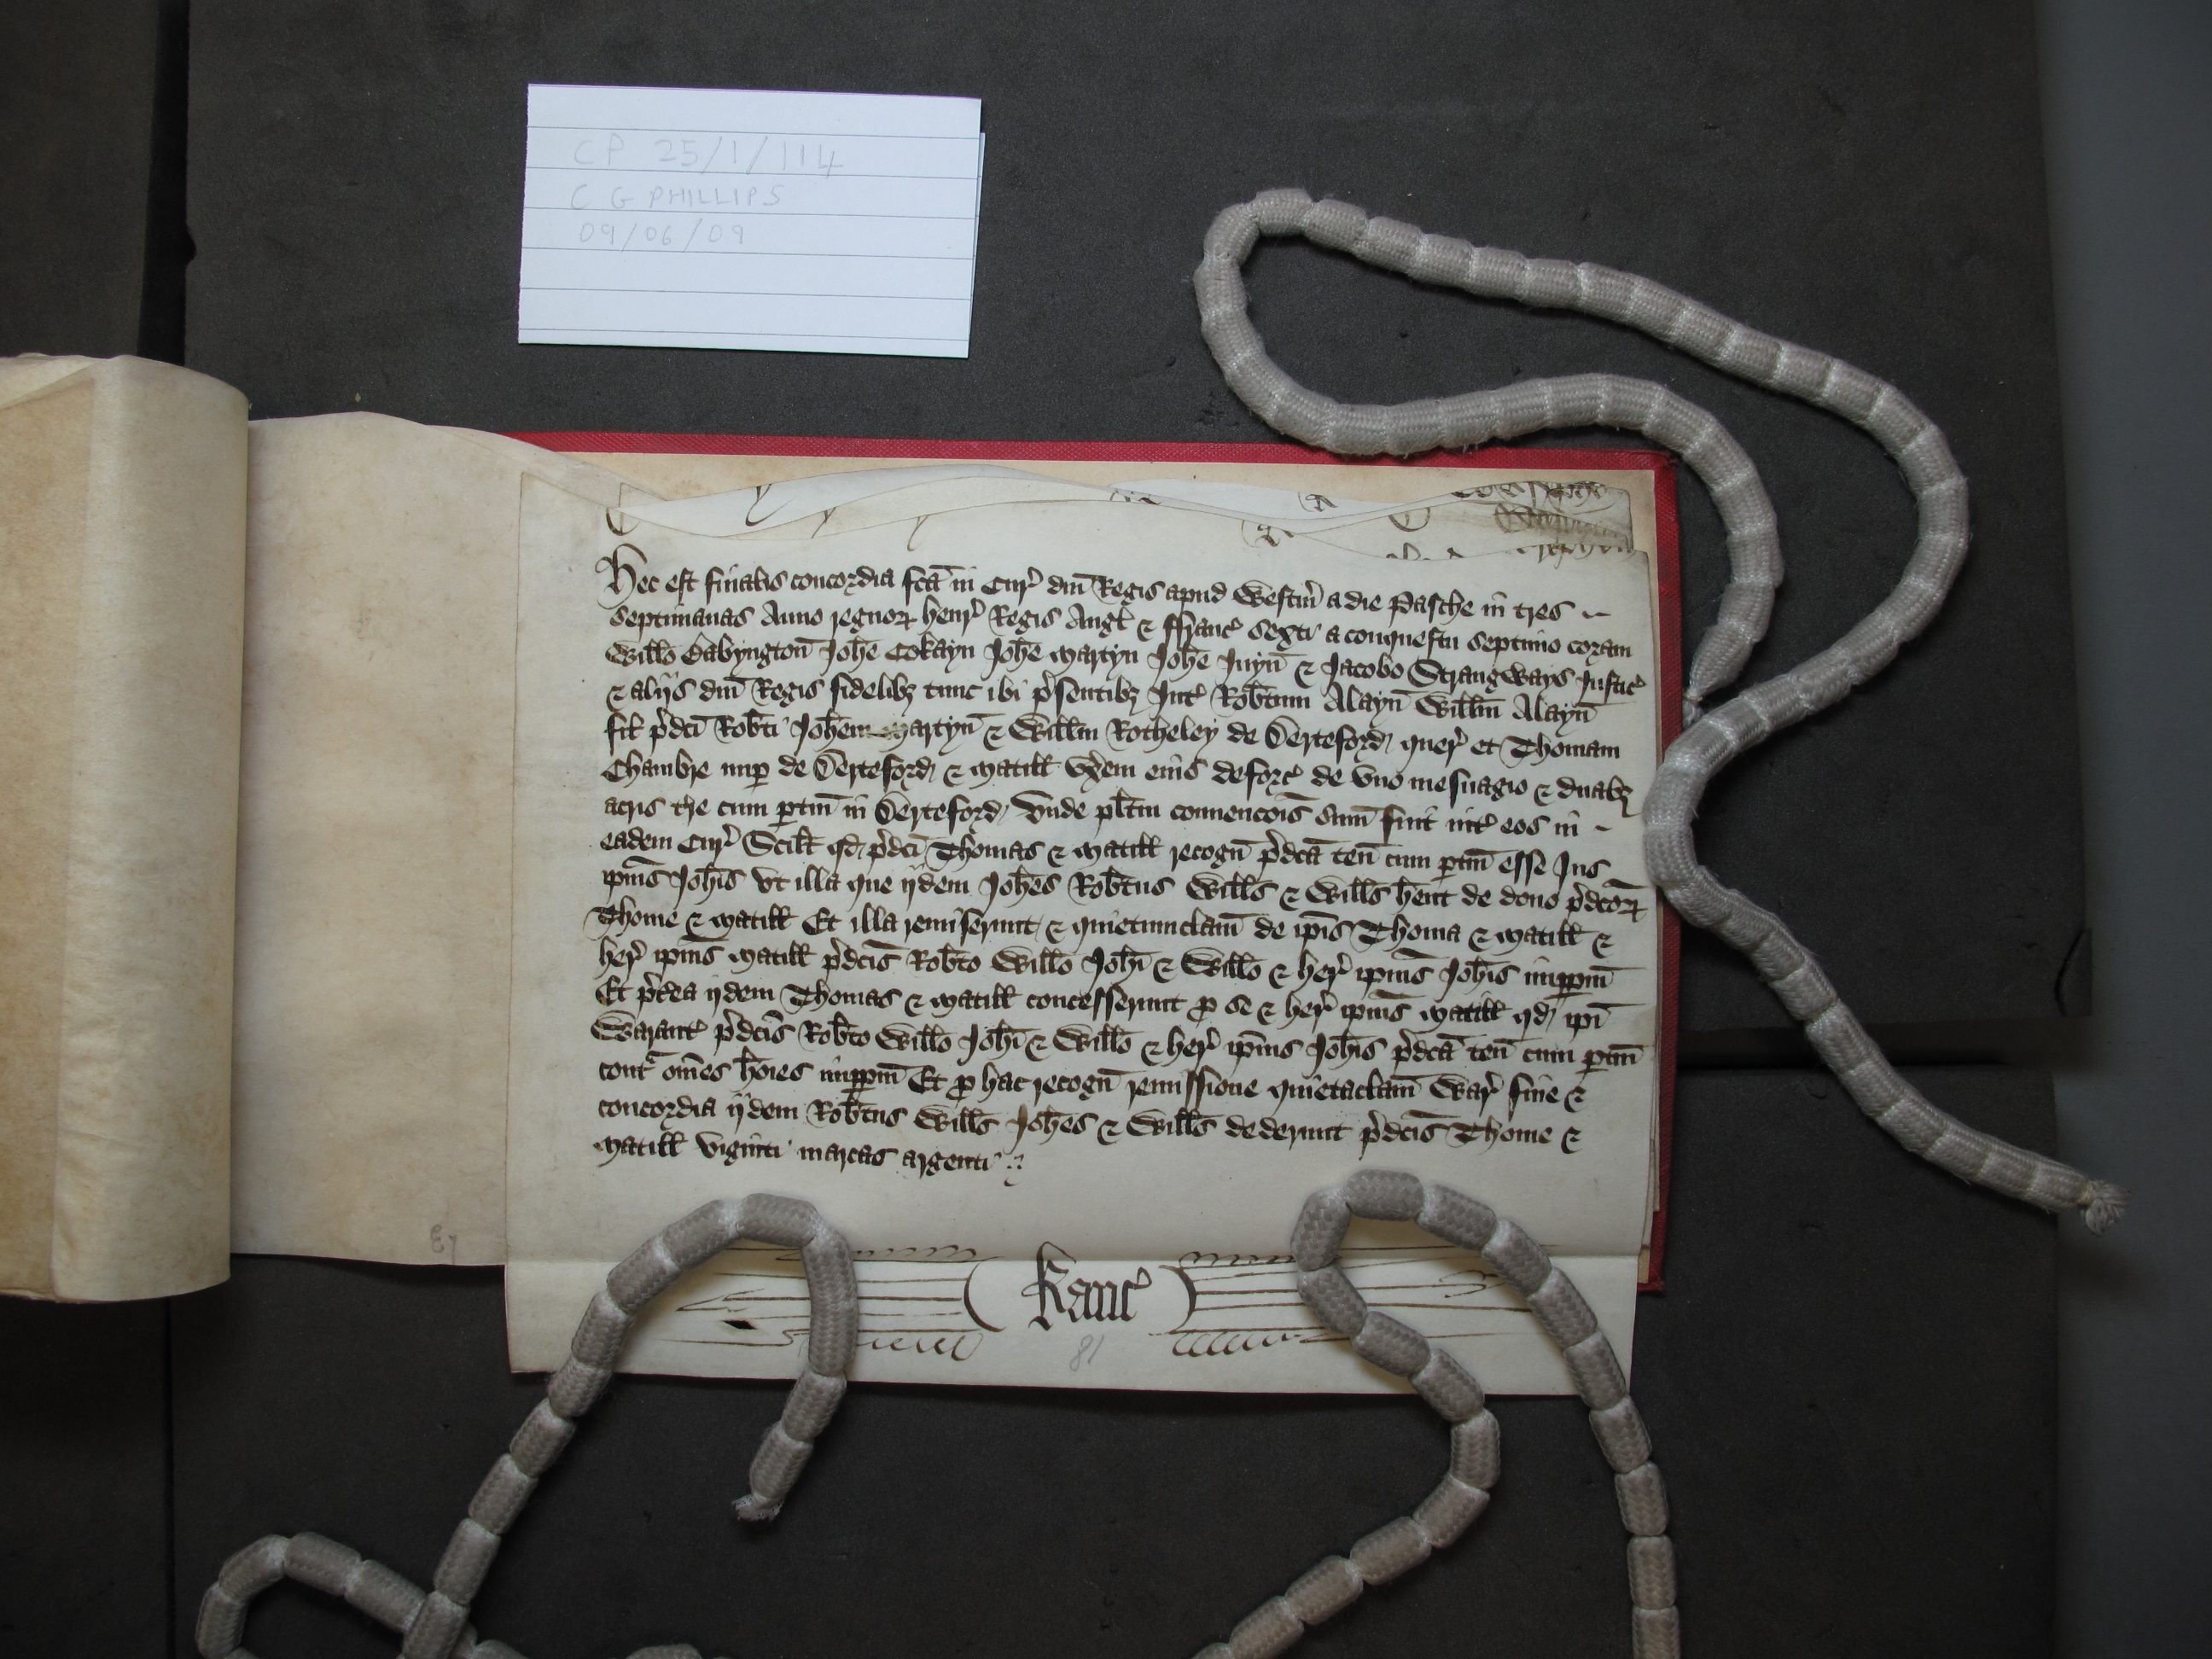 CP 25/1/114
C G PHILLIPS
09/06/09
Hec est finalis concordia fcā in Cur̉ dnī Regis apud Westm̉ a die Pasche in tres
septimanas Anno regnoꝝ henr̉ Regis Angł & ffranc̉ sexti a conquestu septimo coram
Willō Babyngton̄ Joh̄e Cokayn Joh̄e Martyn Joh̄e Juyn̄ & Jacobo Strangways Justic̉
& alijs dnī Regis fidelibꝫ tunc ibi p̉sentibꝫ Int̉ Rob̄tum Alayn̄ Willm̄ Alayn̄
fił p̉dc̄i Rob̄ti Joh̄em Martyn̄ & Willm̄ Rotheley de Derteford quer̉ et Thomam
Chambre nup̱ de Derteford & Matiłł vx̉em eius deforc̉ de vno mesuagio & duabꝫ
acris tr̉e cum ptin̄ in Derteford Vnde plītm conuencōis sum̄ fuit int̉ eos in
eadem Cur̉ Sciłt qd p̉dc̄i Thomas & Matiłł recogn̄ p̉dc̄a ten̄ cum ptin̄ esse Jus
ipīus Joh̄is vt illa que ijdem Joh̄es Rob̄tus Wills̄ & Wills̄ hent̄ de dono p̉dc̄oꝝ
Thome & Matiłł Et illa remiserunt & quietumclam̄ de ipīs Thoma & Matiłł &
her̉ ipīus Matiłł p̉dc̄is Rob̄to Willō Joh̄i & Willō & her̉ ipīus Joh̄is imppm̄
Et p̉tea ijdem Thomas & Matiłł concesserunt ꝓ se & her̉ ipīus Matiłł qd ipī
Warant̉ p̉dc̄is Rob̄to Willō Joh̄i & Willō & her̉ ipīus Joh̄is p̉dc̄a ten̄ cum ptin̄
contᵃ om̄es hōies imppm̄ Et ꝓ hac recogn̄ remissione quietaclam̄ War̉ fine &
concordia ijdem Rob̄tus Wills̄ Joh̄es & Wills̄ dederunt p̉dc̄is Thome &
Matiłł viginti marcas argenti
Kanc̉
81